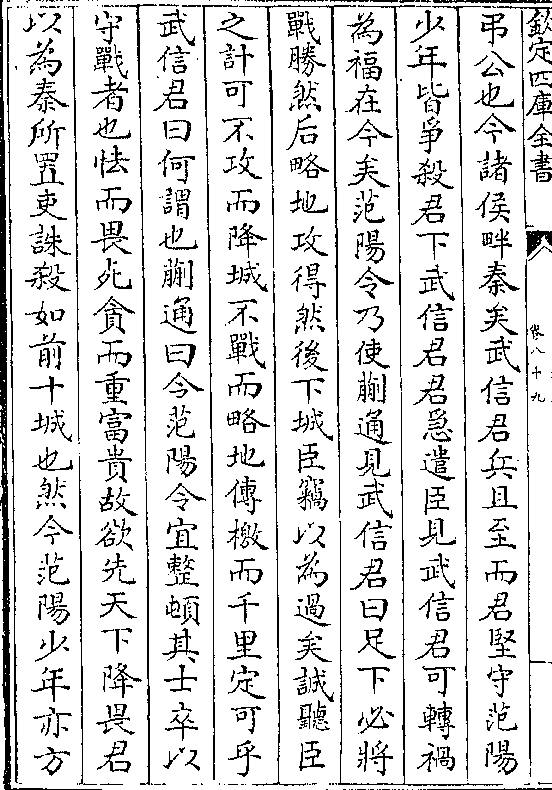 欽定四庫全書
卷八十九
弔公也今諸侯畔秦矣武信君兵且至而君堅守范陽
少年皆爭殺君下武信君君急遣臣見武信君可轉禍
為福在今矣范陽令乃使蒯通見武信君曰足下必將
戰勝然后略地攻得然後下城臣竊以為過矣誠聽臣
之計可不攻而降城不戰而略地傳檄而千里定可乎
武信君曰何謂也蒯通曰今范陽令宜整頓其士卒以
守戰者也怯而畏死貪而重富貴故欲先天下降畏君
以為秦所置吏誅殺如前十城也然今范陽少年亦方